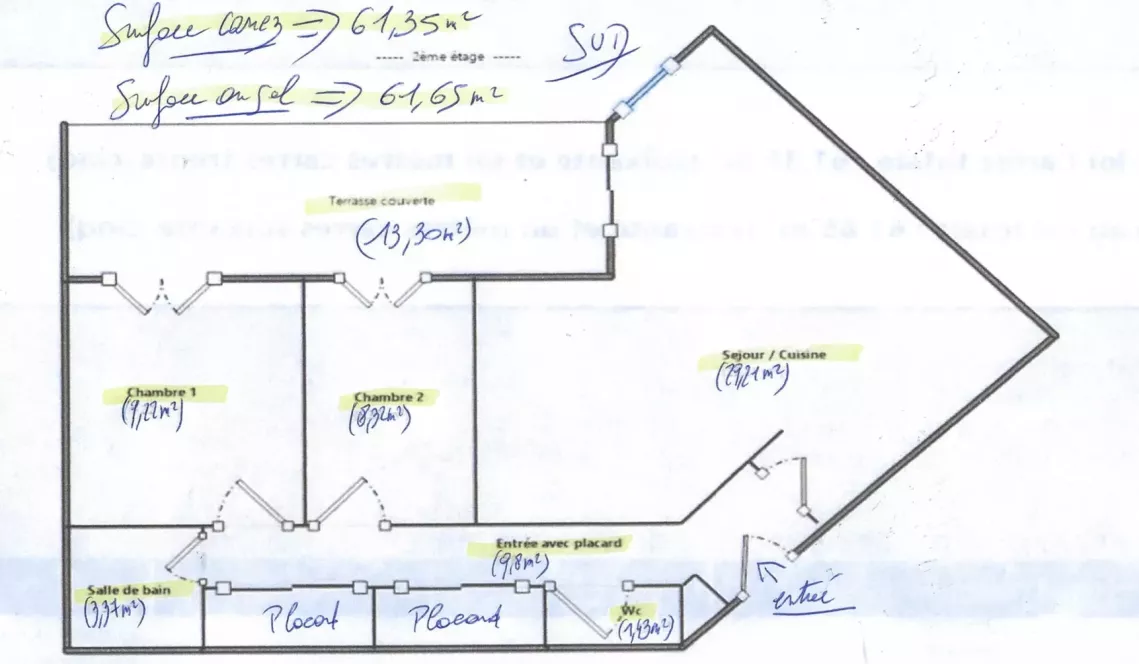 Surface Carrez => 61,35 m²
----- 2ème étage -----
SUD
Surface au sol => 61,65 m²
Terrasse couverte
(13,30m²)
Sejour / Cuisine
(29,21m²)
Chambre 1
(9,22m²)
Chambre 2
(8,32m²)
Entrée avec placard
(9,8m²)
Salle de bain
(3,37m²)
Placard
Placard
Wc
(1,43m²)
entrée